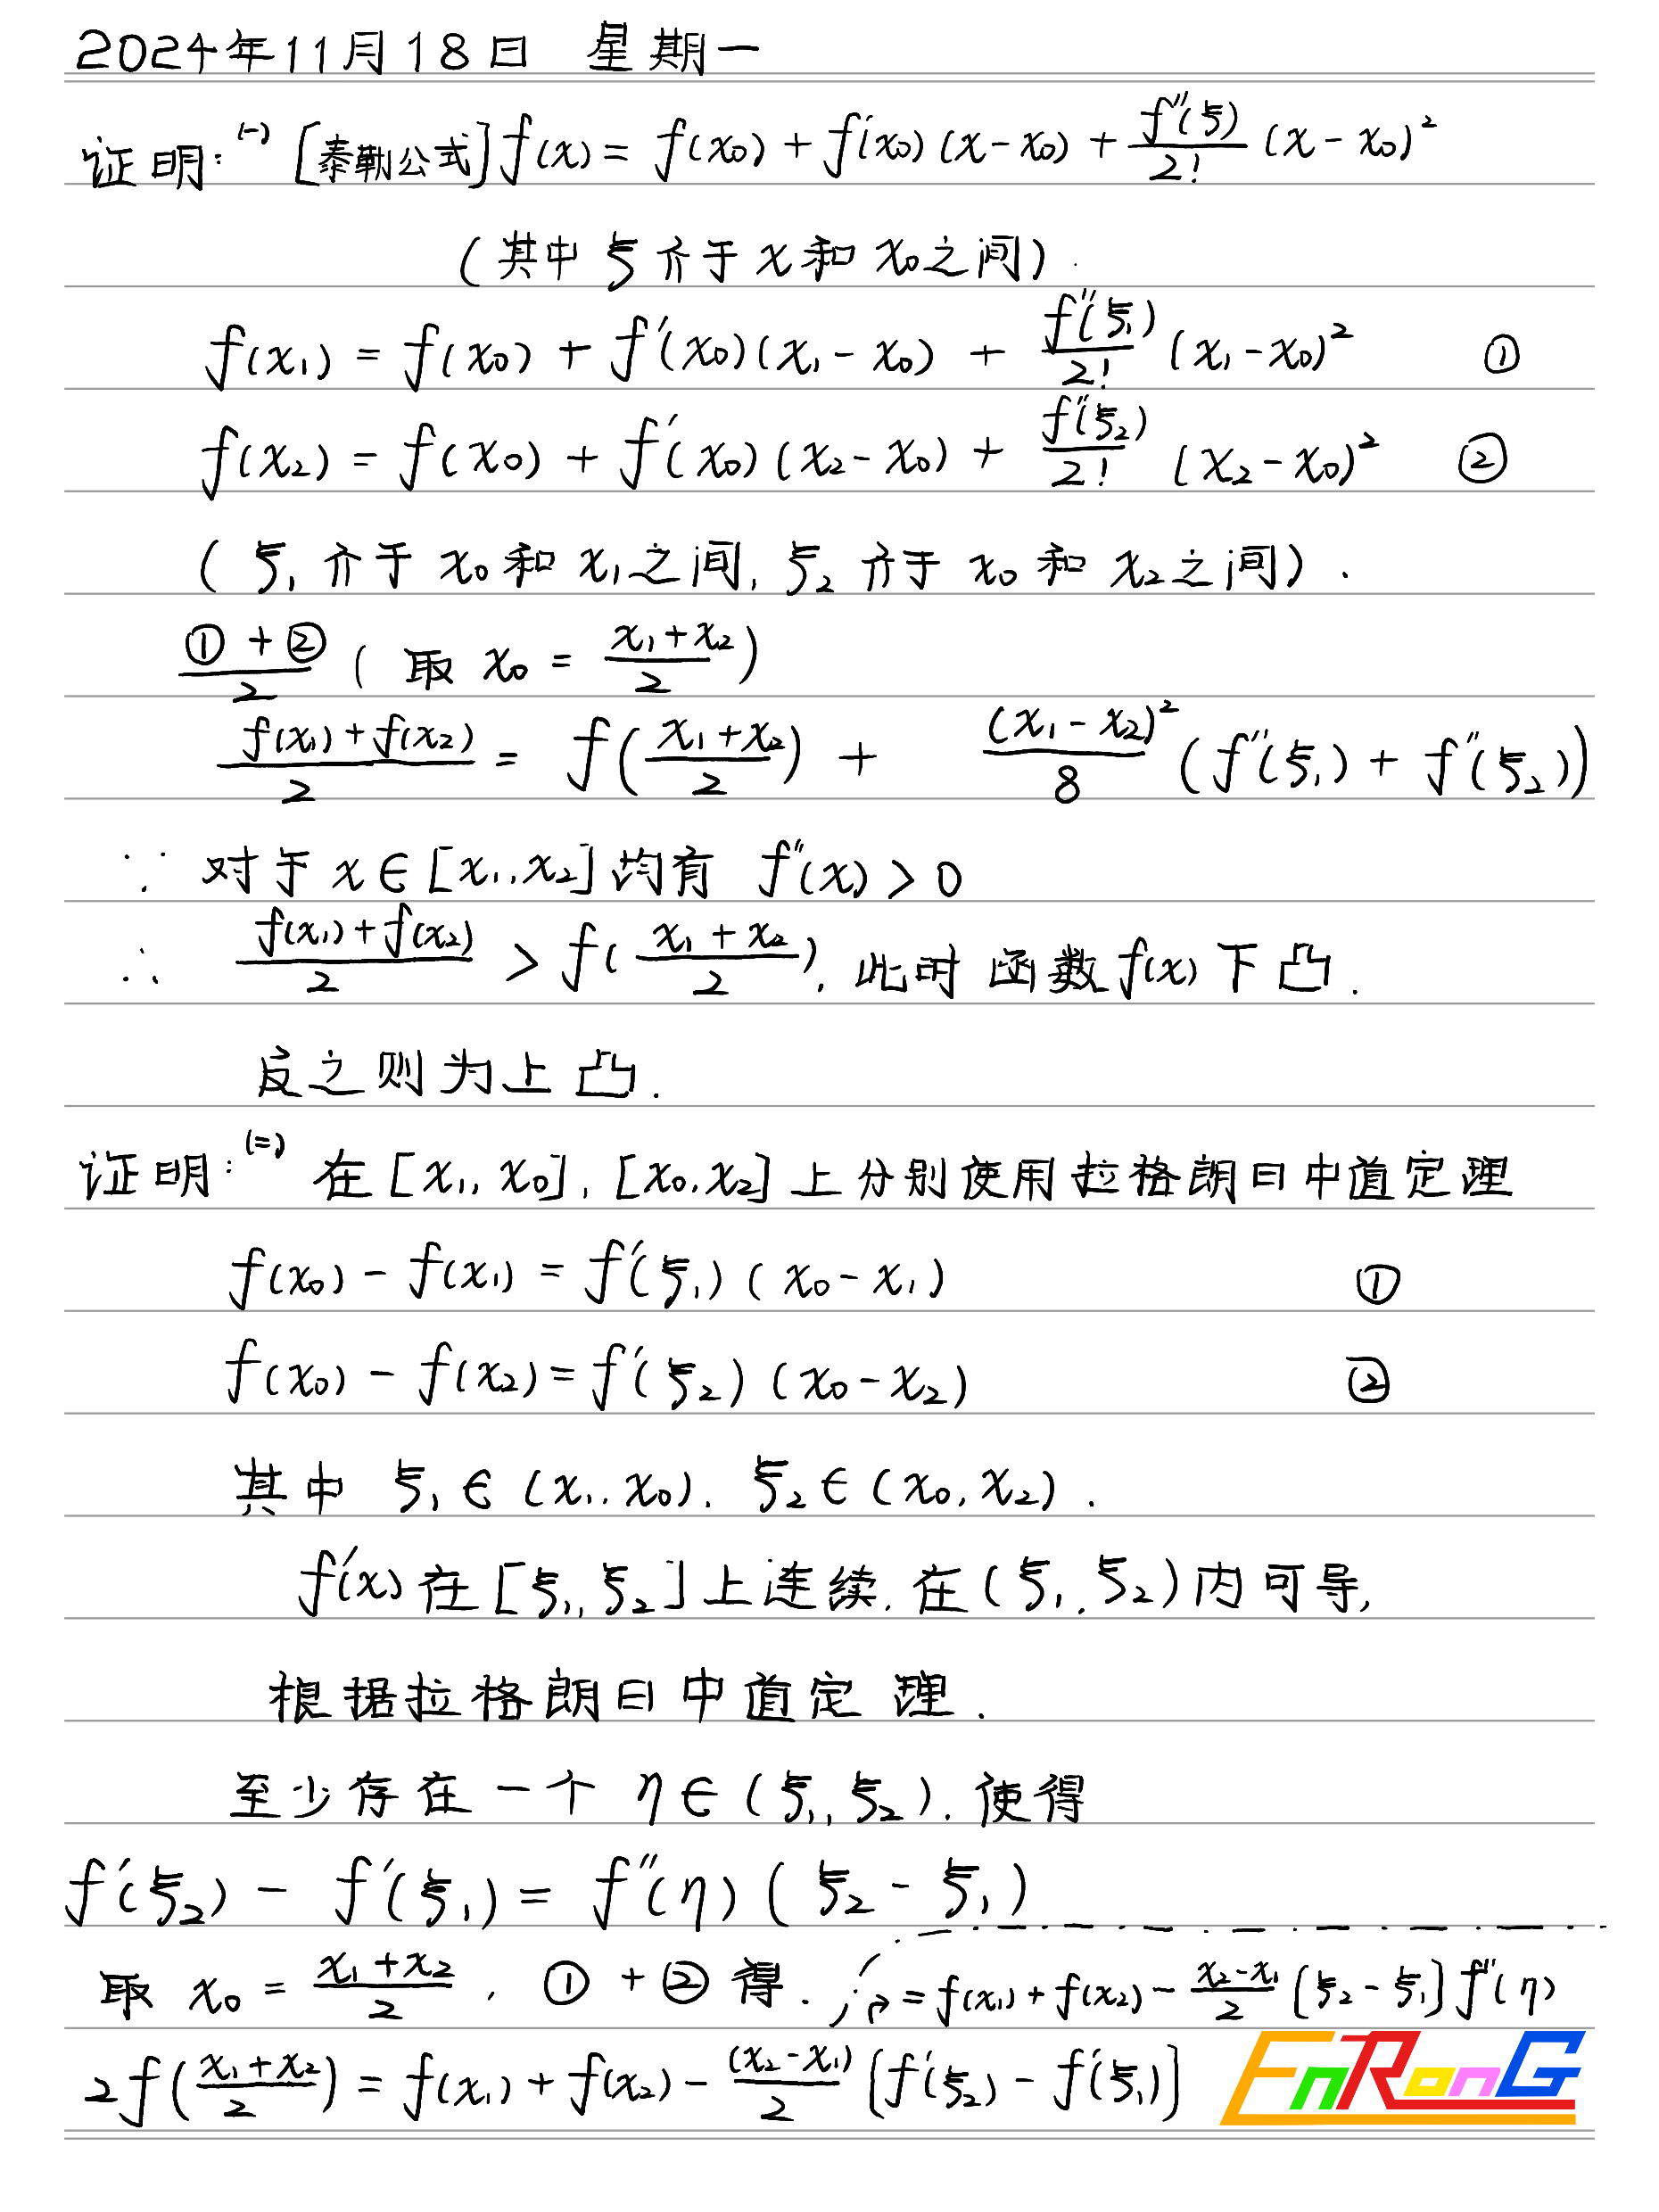 2024年11月18日 星期一
证明:(一) [泰勒公式] f(x) = f(x₀) + f'(x₀)(x-x₀) + f''(ξ)/2! (x-x₀)²
(其中 ξ 介于 x 和 x₀ 之间).
f(x₁) = f(x₀) + f'(x₀)(x₁-x₀) + f''(ξ₁)/2! (x₁-x₀)² ①
f(x₂) = f(x₀) + f'(x₀)(x₂-x₀) + f''(ξ₂)/2! (x₂-x₀)² ②
(ξ₁ 介于 x₀ 和 x₁ 之间, ξ₂ 介于 x₀ 和 x₂ 之间).
(①+②)/2 (取 x₀ = (x₁+x₂)/2)
(f(x₁)+f(x₂))/2 = f((x₁+x₂)/2) + (x₁-x₂)²/8 (f''(ξ₁) + f''(ξ₂))
∵ 对于 x∈[x₁,x₂] 均有 f''(x) > 0
∴ (f(x₁)+f(x₂))/2 > f((x₁+x₂)/2), 此时函数 f(x) 下凸.
反之则为上凸.
证明:(二) 在 [x₁, x₀], [x₀, x₂] 上分别使用拉格朗日中值定理
f(x₀) - f(x₁) = f'(ξ₁)(x₀-x₁) ①
f(x₀) - f(x₂) = f'(ξ₂)(x₀-x₂) ②
其中 ξ₁∈(x₁,x₀), ξ₂∈(x₀,x₂).
f'(x) 在 [ξ₁,ξ₂] 上连续, 在 (ξ₁,ξ₂) 内可导,
根据拉格朗日中值定理.
至少存在一个 η∈(ξ₁,ξ₂), 使得
f'(ξ₂) - f'(ξ₁) = f''(η)(ξ₂-ξ₁)
取 x₀ = (x₁+x₂)/2, ①+②得. = f(x₁)+f(x₂) - (x₂-x₁)/2 [ξ₂-ξ₁] f''(η)
2f((x₁+x₂)/2) = f(x₁) + f(x₂) - (x₂-x₁)/2 [f'(ξ₂) - f'(ξ₁)]
EnRonG